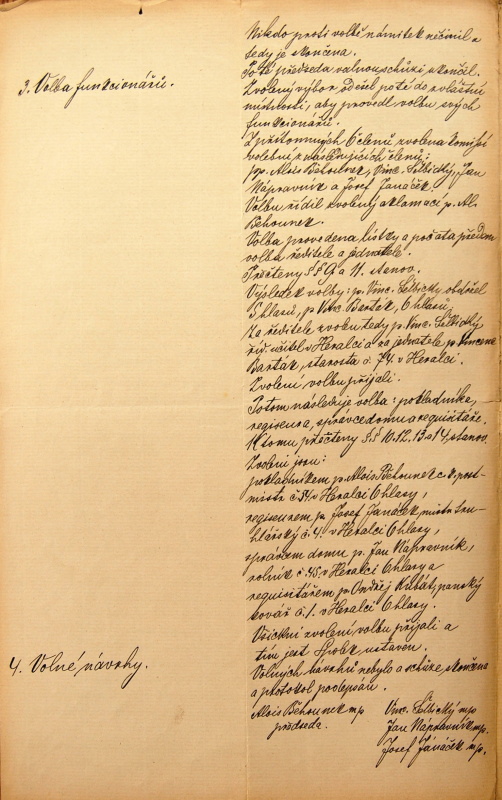 Nikdo proti volbě námitek nečinil a
tedy je skončena.
Poté předseda valnou schůzi skončil.
3. Volba funkcionářů.
Zvolený výbor odešel poté do zvláštní
místnosti, aby provedl volbu svých
funkcionářů.
Z přítomných 6 členů zvolena komise
volební z následujících členů:
pp. Alois Běhounek, Vinc. Lebický, Jan
Nápravník a Josef Janáček.
Volbu řídil zvolený aklamací p. Al.
Běhounek.
Volba provedena lístky a počata předem
volba ředitele a jednatele.
Přečteny §§ 9 a 11. stanov.
Výsledek volby: p. Vinc. obdržel
5 hlasů, p. Vinc. Barták, 6 hlasů,
Za ředitele zvolen tedy p. Vinc.
říd. učitel v Heralci a za jednatele p. Vincenc
Barták, starosta č. 74. v Heralci.
Zvolení volbu přijali.
Potom následuje volba: pokladníka,
regiseura, správce domu a requisitáře.
K tomu přečteny §§ 10. 12. 13 a 14. stanov.
Zvoleni jsou:
pokladníkem p. Alois Běhounek c. k. post-
mistr v Heralci 6 hlasy,
regiseurem p. Josef Janáček, mistr tru-
hlářský č. 4. v Heralci 6 hlasy,
správcem domu p. Jan Nápravník,
rolník č. 45. v Heralci 6 hlasy a
requisitářem p. Ondřej Kubát, panský
kovář č. 1. v Heralci 6 hlasy.
Všickni zvolení volbu přijali a
tím jest Spolek ustaven.
4. Volné návrhy.
Volných návrhů nebylo a schůze skončena
a protokol podepsán.
Alois Běhounek mp
předseda.
Vinc. mp
Jan Nápravník mp.
Josef Janáček mp.